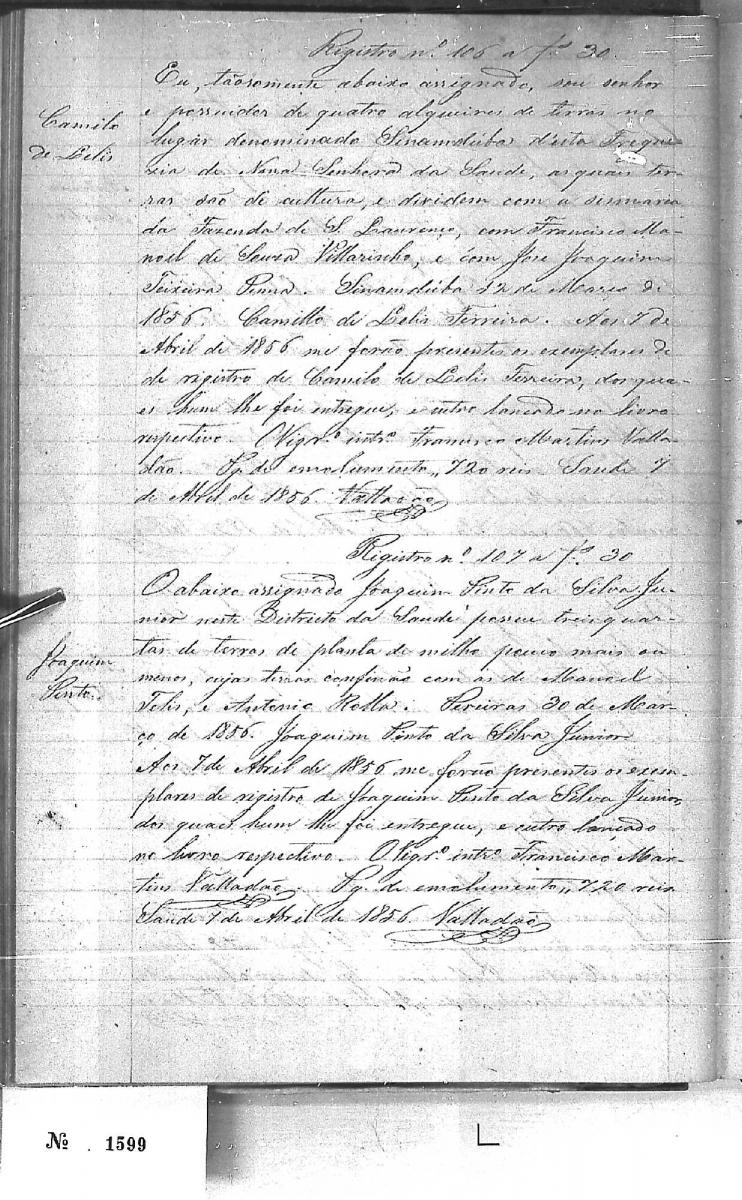 Registro nº 106 a fs 30.
Eu, tãosomente abaixo assignado, sou senhor
e possuidor de quatro alqueires de terras no
Camilo
lugar denominado Sinamdúba d'esta Fregue-
de Lelis
zia de Nossa Senhora da Saude, as quais ter-
ras são de cultura, e dividem com a sismaria
da Fazenda de S. Laurenço, com Francisco Ma-
noel de Souza Villarinho, e com Jose Joaquim
Teixeira Penna. Sinamdúba 12 de Março de
1856. Camillo de Lelis Ferreira. Aos 7 de
Abril de 1856 me forão presentes os exemplares de
de registro de Camilo de Lelis Ferreira, dos qua-
es hum lhe foi entregue, e outro lancado no livro
respectivo. O Vigrº intrº Francisco Martins Valla-
dão. Pg. de emolumento,, 720 reis Saude 7
de Abril de 1856 Valladão
Registro nº 107 a fs 30
O abaixo assignado Joaquim Pinto da Silva Ju-
nior neste Districto da Saude possue tres quar-
tas de terras de planta de milho pouco mais ou
Joaquim
menos, cujas terras confinão com as de Manoel
Pinto
Felis, e Antonio Rolla. Pereiras 30 de Mar-
ço de 1856. Joaquim Pinto da Silva Junior
Aos 7 de Abril de 1856 me forão presentes os exem-
plares de registro de Joaquim Pinto da Silva Junior,
dos quais hum lhe foi entregue, e outro lançado
no livro respectivo. O Vigrº intrº Francisco Mar-
tins Valladão. Pg. de emolumento,, 720 reis
Saude 7 de Abril de 1856 Valladão
Nº 1599